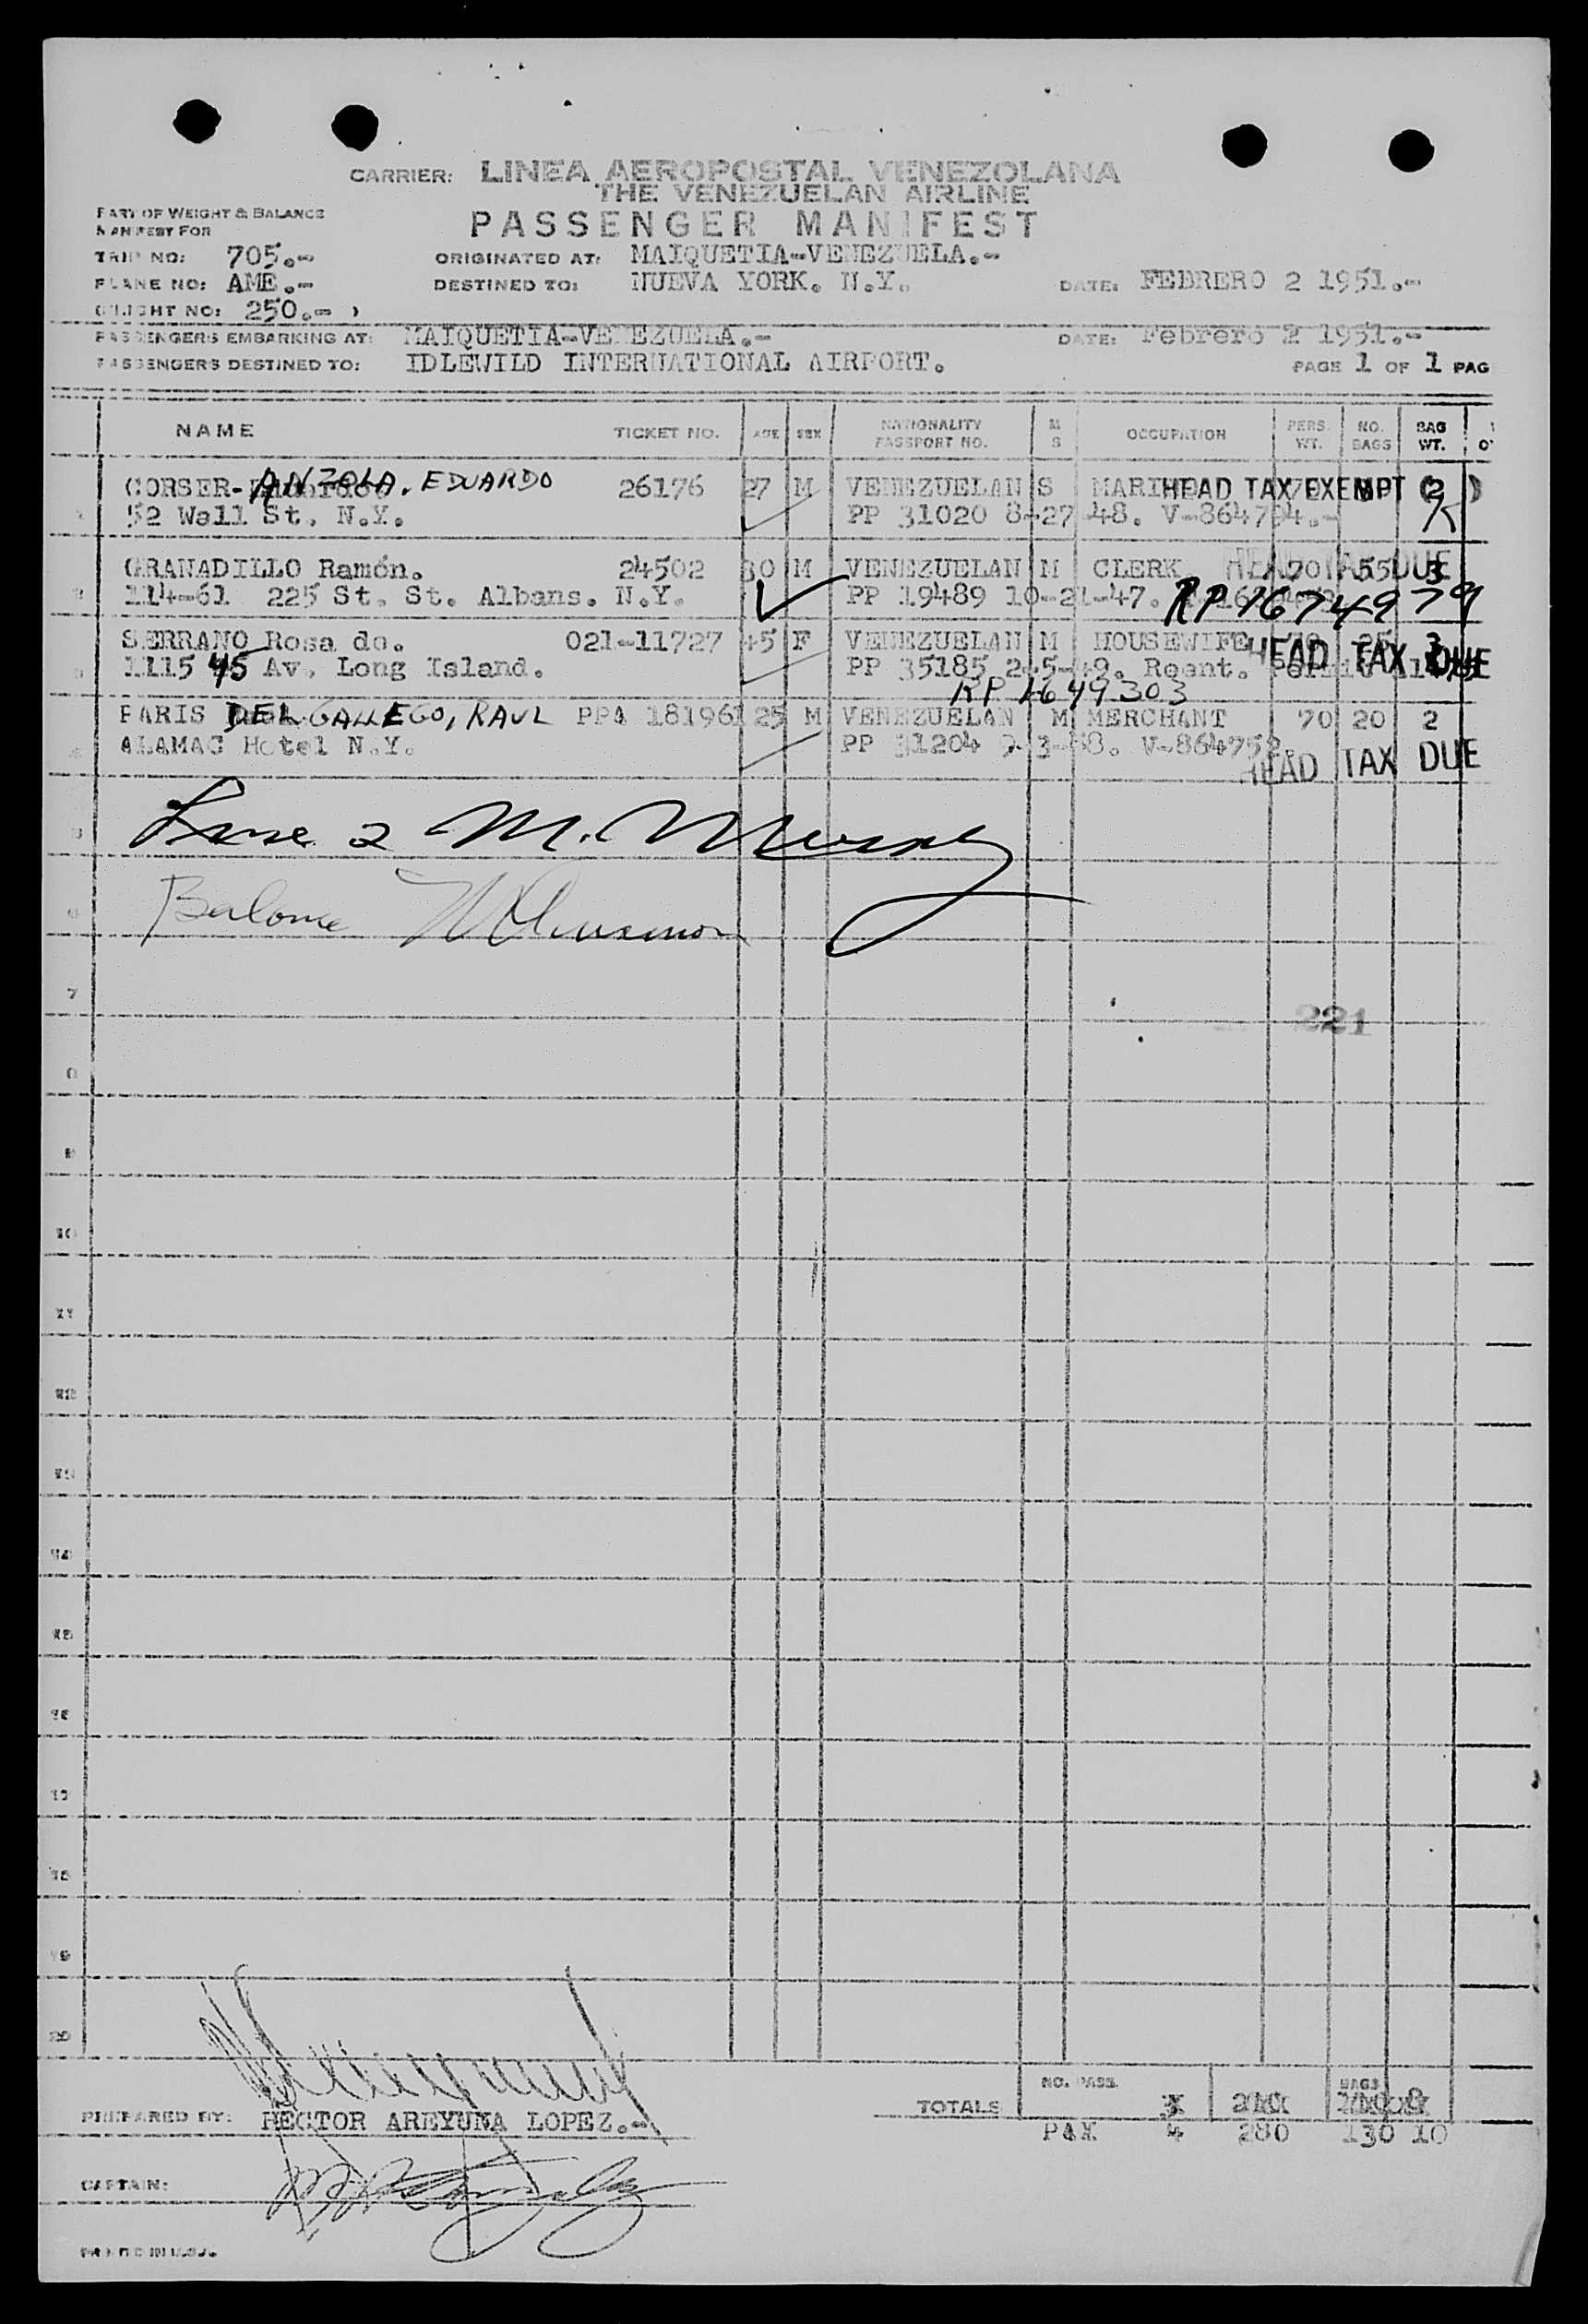 CARRIER: LINEA AEROPOSTAL VENEZOLANA
THE VENEZUELAN AIRLINE
PASSENGER MANIFEST
PART OF WEIGHT & BALANCE
MANIFEST FOR
TRIP NO: 705.-
PLANE NO: AME.-
FLIGHT NO: 250.-
ORIGINATED AT: MAIQUETIA-VENEZUELA.-
DESTINED TO: NUEVA YORK. N.Y.
DATE: FEBRERO 2 1951.-
PASSENGERS EMBARKING AT: MAIQUETIA-VENEZUELA.-
DATE: Febrero 2 1951.-
PASSENGERS DESTINED TO: IDLEWILD INTERNATIONAL AIRPORT.
PAGE 1 OF 1 PAG
NAME TICKET NO. AGE SEX NATIONALITY PASSPORT NO. M S OCCUPATION PERS. WT. NO. BAGS BAG WT.
CORSER-ANZOLA, EDUARDO 26176 27 M VENEZUELAN S HEAD TAX EXEMPT ( 2 )
52 Wall St. N.Y. PP 31020 8-27-48. V-864794.-
GRANADILLO Ramón. 24502 30 M VENEZUELAN M CLERK 70 55 3
HEAD TAX DUE
114-61 225 St. St. Albans. N.Y. PP 19489 10-21-47. RP 1674979
SERRANO Rosa de. 021-11727 45 F VENEZUELAN M HOUSEWIFE 70 25 3
HEAD TAX DUE
1115 45 Av. Long Island. PP 35185 2-5-49. Reent.
RP 1649303
PARIS DEL GALLEGO, RAUL PPA 18196 25 M VENEZUELAN M MERCHANT 70 20 2
ALAMAC Hotel N.Y. PP 31204 9-3-48. V-864752.
HEAD TAX DUE
7
221
10
11
12
13
14
15
16
17
18
19
20
NO. PASS. BAGS
TOTALS
PREPARED BY: HECTOR AREYUNA LOPEZ.-
PAX 4 280 130 10
CAPTAIN:
PRINTED IN U.S.A.